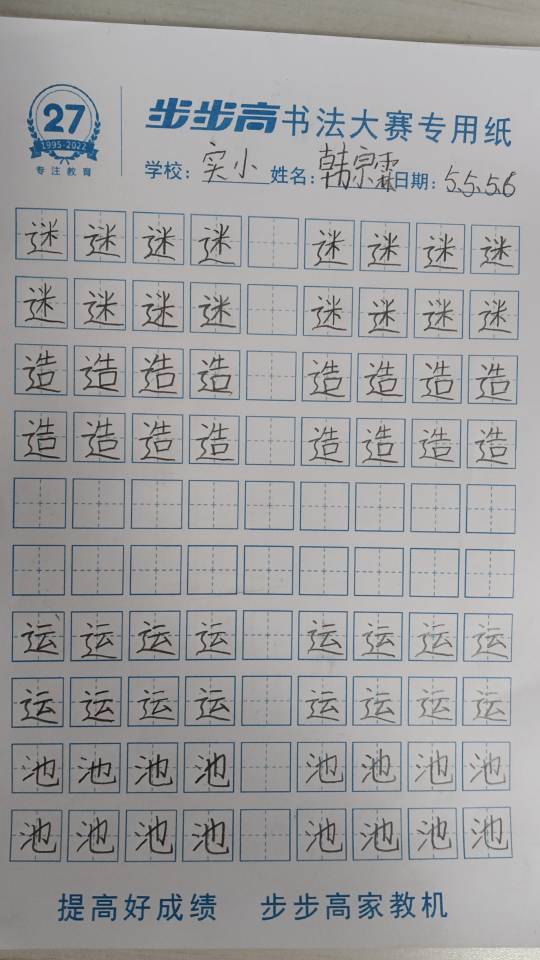 27
1995-2022
专注教育
步步高书法大赛专用纸
学校：实小 姓名：韩宗霖 日期：5.5.5.6
迷 迷 迷 迷 迷 迷 迷 迷
迷 迷 迷 迷 迷 迷 迷 迷
造 造 造 造 造 造 造 造
造 造 造 造 造 造 造 造
运 运 运 运 运 运 运 运
运 运 运 运 运 运 运 运
池 池 池 池 池 池 池 池
池 池 池 池 池 池 池 池
提高好成绩 步步高家教机